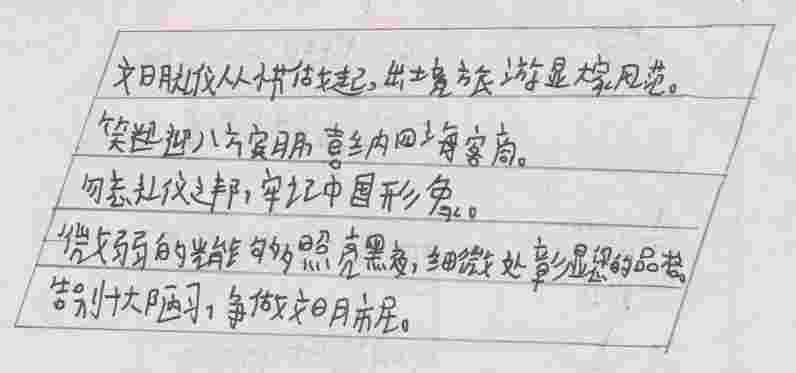 文明礼仪从小做起,出境旅游显大家风范。
笑迎八方宾朋 喜纳四海客商。
勿忘礼仪之邦,牢记中国形象。
微弱的光能够照亮黑夜,细微处彰显您的品格。
告别十大陋习,争做文明市民。